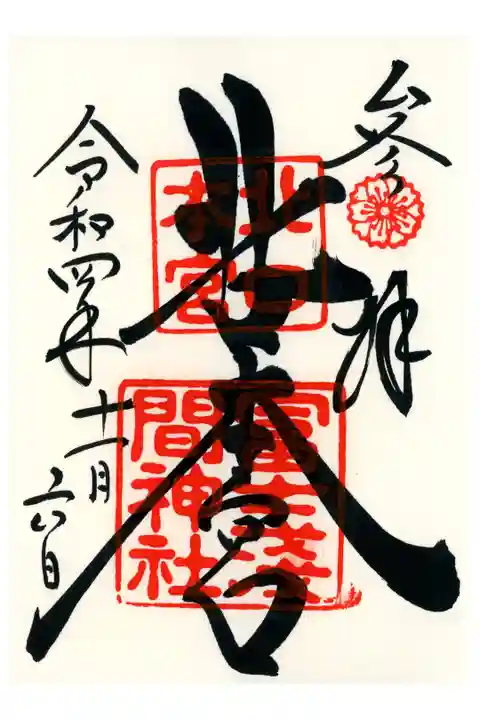 参拝
北口本宮
北口
本宮
冨士浅
間神社
令和四年十一月六日